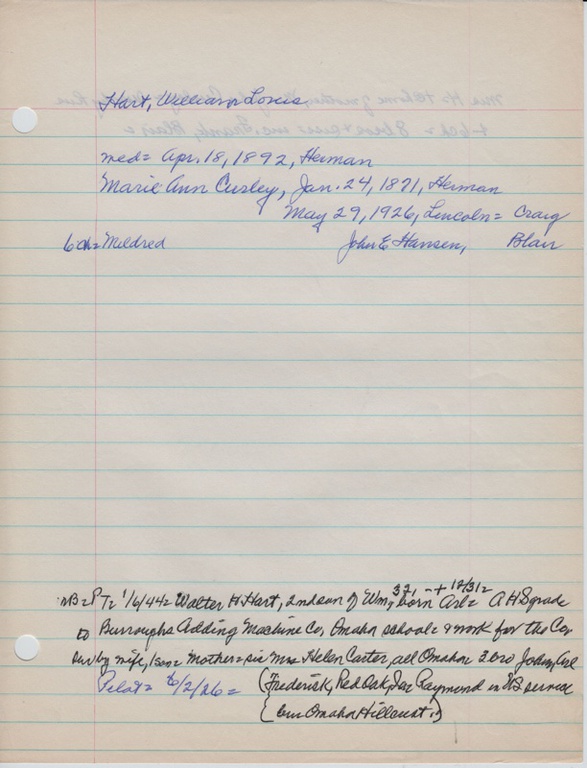 Hart, William Louis
med= Apr. 18, 1892, Herman
Marie Ann Cusley, Jan. 24, 1871, Herman
May 29, 1926, Lincoln= Craig
6 ch= Mildred John E Hansen, Blair
37, - + 12/31=
1/6/44= Walter H. Hart, 2nd son of Wm, born Arl= AHS grade
to Burroughs Adding Machine Co, Omaha school= & work for the Co=
Sur by wife, 1 son= Mother= sis Mrs Helen Carter, all Omaha= 3 bro John, Arl
Pilot= 6/2/26= (Frederick, Red Oak, Ia= Raymond in US service
(bur Omaha Hillcrest.)